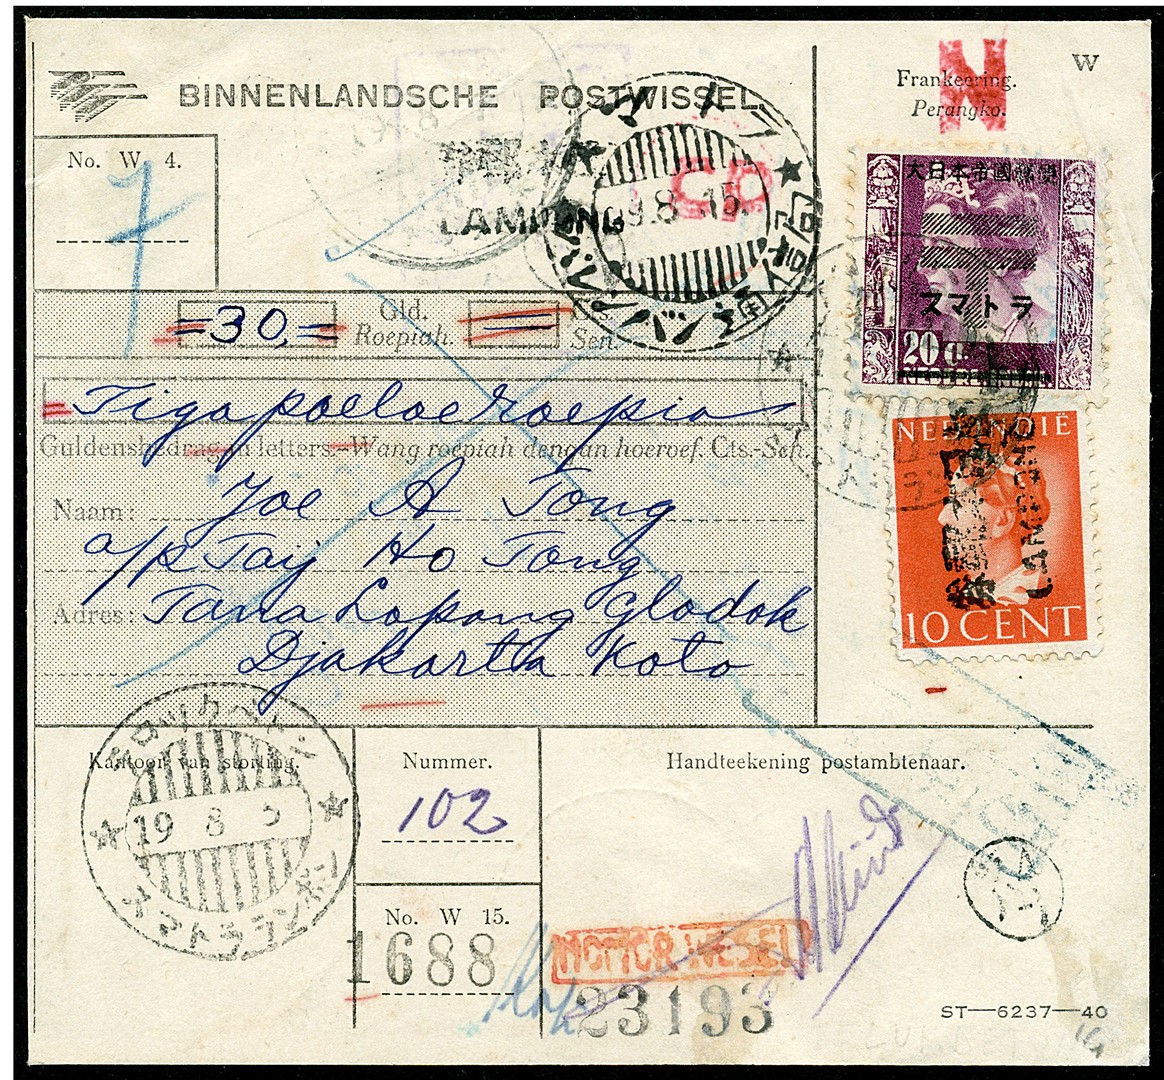 BINNENLANDSCHE POSTWISSEL
No. W 4.
7
LAMPONG
19.8.15.
N
W
Frankeering.
Perangko.
大日本帝國郵便
スマトラ
20 ct
NED. INDIË
LAMPONG
10 CENT
=30,= Gld. Roepiah.
Sen.
= Tigapoeloe roepia
Guldensbedrag in letters.-Wang roepiah dengan hoeroef. Cts.-Sen.
Naam: Joe A Tong
a/p Taij Ho Tong
Adres: Tana Lapang Glodok
Djakarta Koto
Kantoor van storting.
19 8 5
スマトラランポン
Nummer.
102
No. W 15.
1688
Handteekening postambtenaar.
NOMOR WESEL
23193
ST—6237—40